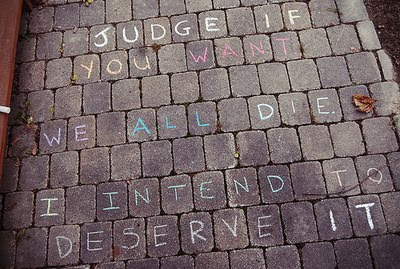 JUDGE IF
YOU WANT
WE ALL DIE.
I INTEND TO
DESERVE IT